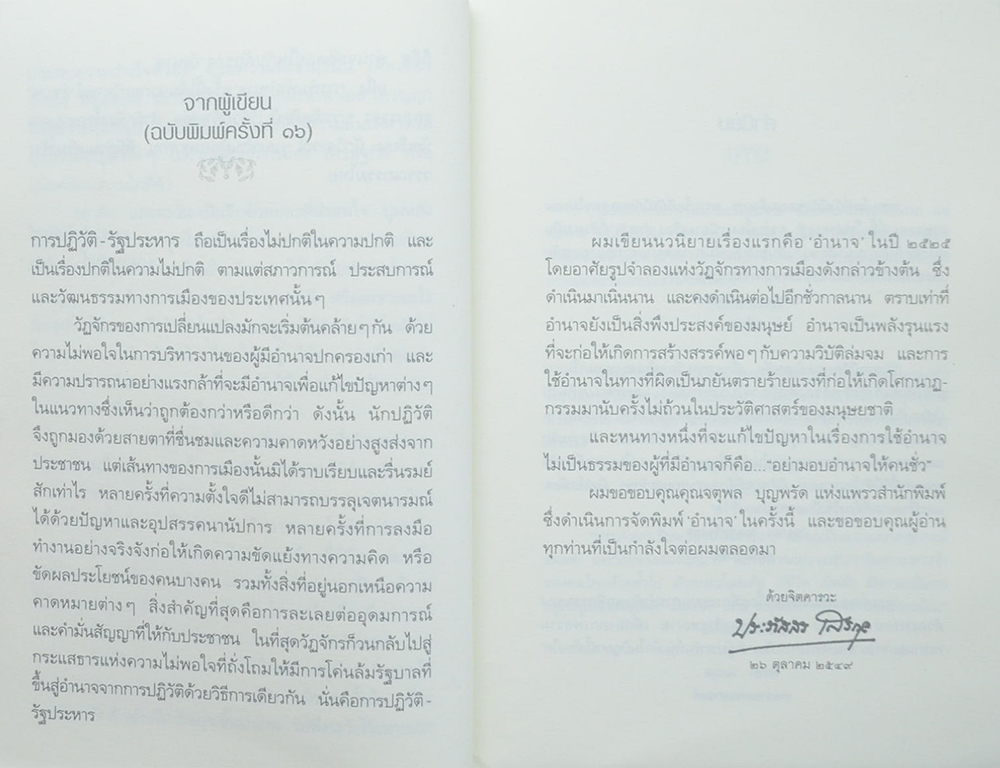 จากผู้เขียน
(ฉบับพิมพ์ครั้งที่ ๑๖)
การปฏิวัติ-รัฐประหาร ถือเป็นเรื่องไม่ปกติในความปกติ และ
เป็นเรื่องปกติในความไม่ปกติ ตามแต่สภาวการณ์ ประสบการณ์
และวัฒนธรรมทางการเมืองของประเทศนั้นๆ
วัฏจักรของการเปลี่ยนแปลงมักจะเริ่มต้นคล้ายๆกัน ด้วย
ความไม่พอใจในการบริหารงานของผู้มีอำนาจปกครองเก่า และ
มีความปรารถนาอย่างแรงกล้าที่จะมีอำนาจเพื่อแก้ไขปัญหาต่างๆ
ในแนวทางซึ่งเห็นว่าถูกต้องกว่าหรือดีกว่า ดังนั้น นักปฏิวัติ
จึงถูกมองด้วยสายตาที่ชื่นชมและความคาดหวังอย่างสูงส่งจาก
ประชาชน แต่เส้นทางของการเมืองนั้นมิได้ราบเรียบและรื่นรมย์
สักเท่าไร หลายครั้งที่ความตั้งใจดีไม่สามารถบรรลุเจตนารมณ์
ได้ด้วยปัญหาและอุปสรรคนานัปการ หลายครั้งที่การลงมือ
ทำงานอย่างจริงจังก่อให้เกิดความขัดแย้งทางความคิด หรือ
ขัดผลประโยชน์ของคนบางคน รวมทั้งสิ่งที่อยู่นอกเหนือความ
คาดหมายต่างๆ สิ่งสำคัญที่สุดคือการละเลยต่ออุดมการณ์
และคำมั่นสัญญาที่ให้กับประชาชน ในที่สุดวัฏจักรก็วนกลับไปสู่
กระแสธารแห่งความไม่พอใจที่ถั่งโถมให้มีการโค่นล้มรัฐบาลที่
ขึ้นสู่อำนาจจากการปฏิวัติด้วยวิธีการเดียวกัน นั่นคือการปฏิวัติ-
รัฐประหาร
ผมเขียนนวนิยายเรื่องแรกคือ ‘อำนาจ’ ในปี ๒๕๒๕
โดยอาศัยรูปจำลองแห่งวัฏจักรทางการเมืองดังกล่าวข้างต้น ซึ่ง
ดำเนินมาเนิ่นนาน และคงดำเนินต่อไปอีกชั่วกาลนาน ตราบเท่าที่
อำนาจยังเป็นสิ่งพึงประสงค์ของมนุษย์ อำนาจเป็นพลังรุนแรง
ที่จะก่อให้เกิดการสร้างสรรค์พอๆกับความวิบัติล่มจม และการ
ใช้อำนาจในทางที่ผิดเป็นภยันตรายร้ายแรงที่ก่อให้เกิดโศกนาฏ-
กรรมมานับครั้งไม่ถ้วนในประวัติศาสตร์ของมนุษยชาติ
และหนทางหนึ่งที่จะแก้ไขปัญหาในเรื่องการใช้อำนาจ
ไม่เป็นธรรมของผู้ที่มีอำนาจก็คือ...“อย่ามอบอำนาจให้คนชั่ว”
ผมขอขอบคุณคุณจตุพล บุญพรัด แห่งแพรวสำนักพิมพ์
ซึ่งดำเนินการจัดพิมพ์ ‘อำนาจ’ ในครั้งนี้ และขอขอบคุณผู้อ่าน
ทุกท่านที่เป็นกำลังใจต่อผมตลอดมา
ด้วยจิตคารวะ
ประภัสสร เสวิกุล
๒๖ ตุลาคม ๒๕๔๙